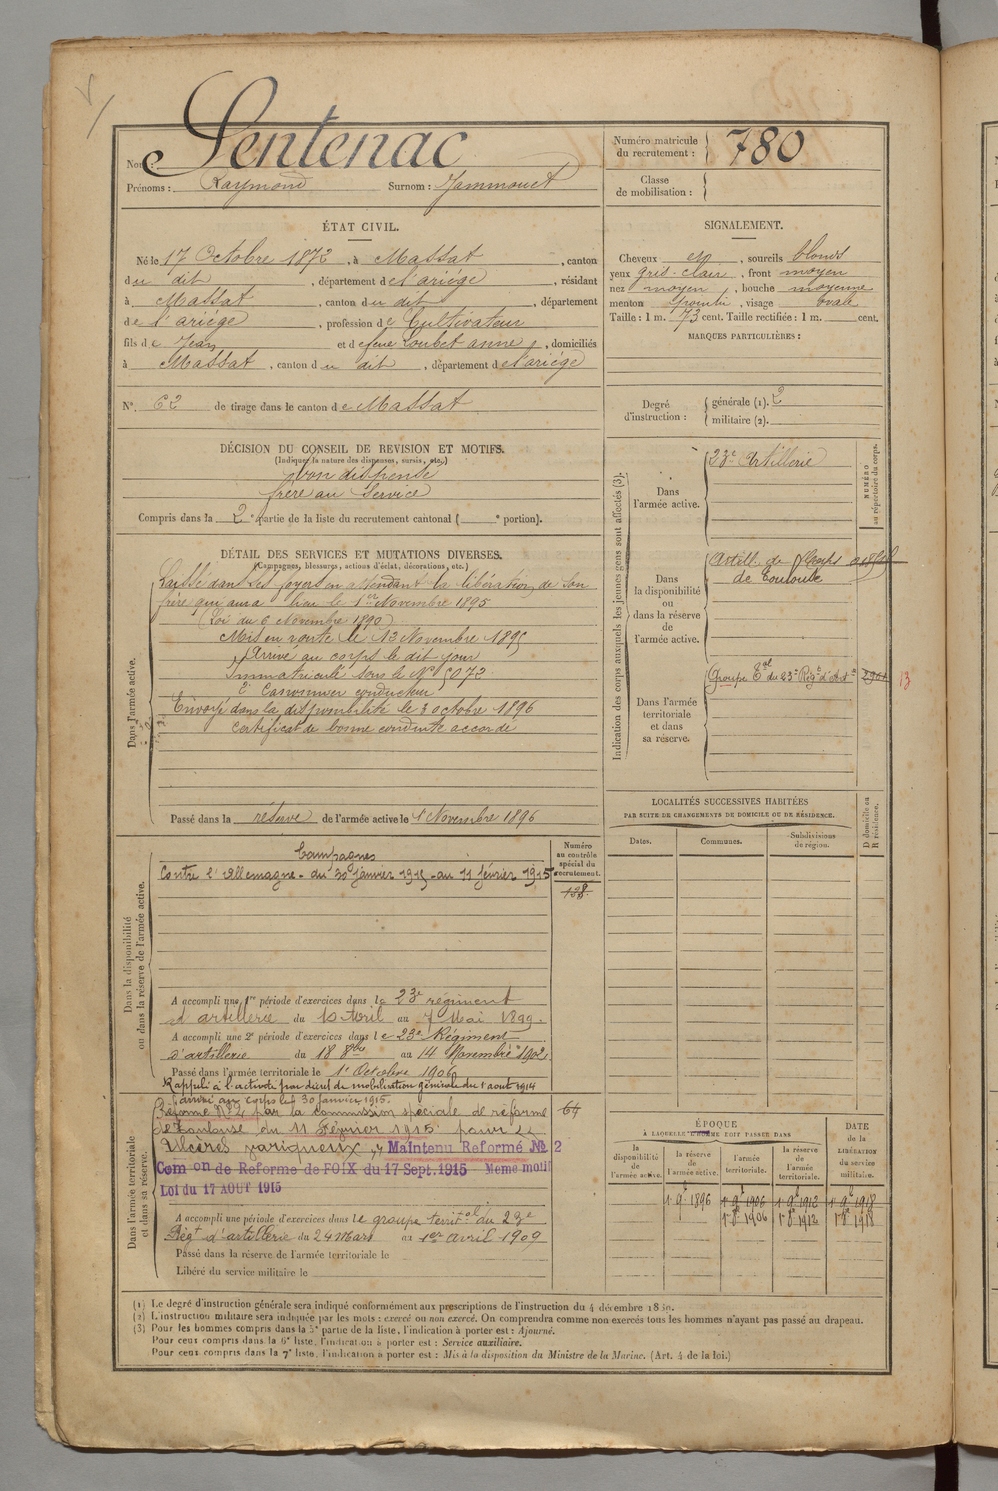 Nom : Sentenac
Prénoms : Raymond Surnom : Jammouet
Numéro matricule du recrutement : 780
Classe de mobilisation :
ÉTAT CIVIL.
Né le 17 Octobre 1872, à Massat, canton
du dit, département de l'ariége, résidant
à Massat, canton du dit, département
de l'ariége, profession de Cultivateur
fils de Jean et de feue Loubet anne, domiciliés
à Massat, canton du dit, département de l'ariége
N°. 62 de tirage dans le canton de Massat
SIGNALEMENT.
Cheveux et, sourcils blonds
yeux gris-clair, front moyen
nez moyen, bouche moyenne
menton pointu, visage ovale
Taille : 1 m. 73 cent. Taille rectifiée : 1 m. cent.
MARQUES PARTICULIÈRES :
Degré d'instruction : générale (1). 2
militaire (2).
DÉCISION DU CONSEIL DE REVISION ET MOTIFS.
(Indiquer la nature des dispenses, sursis, etc.)
bon dispensé
frère au Service
Compris dans la 2e partie de la liste du recrutement cantonal ( e portion).
DÉTAIL DES SERVICES ET MUTATIONS DIVERSES.
(Campagnes, blessures, actions d'éclat, décorations, etc.)
Dans l'armée active.
Laissé dans ses foyers en attendant la libération de son
frère qui aura lieu le 1er Novembre 1895
(Loi du 6 Novembre 1890)
Mis en route le 13 Novembre 1895
Arrivé au corps le dit jour
Immatriculé sous le N° 5072
2e Canonnier conducteur
Envoyé dans la disponibilité le 3 octobre 1896
Certificat de bonne conduite accordé
Passé dans la réserve de l'armée active le 1 Novembre 1896
Indication des corps auxquels les jeunes gens sont affectés (3).
NUMÉRO au répertoire du corps.
Dans l'armée active.
23e Artillerie
Dans la disponibilité ou dans la réserve de l'armée active.
Artill. de
de Toulouse
Dans l'armée territoriale et dans sa réserve.
Groupe Tal du 23e Régt d'Art 2961 13
LOCALITÉS SUCCESSIVES HABITÉES
PAR SUITE DE CHANGEMENTS DE DOMICILE OU DE RÉSIDENCE.
Dates. Communes. Subdivisions de région. D domicile ou R résidence.
Dans la disponibilité ou dans la réserve de l'armée active.
Numéro au contrôle spécial du recrutement.
138
Campagnes
Contre l'Allemagne - du 30 janvier 1915 - au 11 février 1915
A accompli une 1re période d'exercices dans le 23e régiment
d'artillerie du 10 Avril au 7 Mai 1899.
A accompli une 2e période d'exercices dans le 23e Régiment
d'artillerie du 18 8bre au 14 Novembre 1902
Passé dans l'armée territoriale le 1er Octobre 1906
Rappelé à l'activité par décret de mobilisation générale du 1 août 1914
Dans l'armée territoriale et dans sa réserve.
arrivé au corps le 30 janvier 1915.
64
Réformé N° 2 par la commission spéciale de réforme
de Toulouse du 11 Février 1915 pour
Ulcères variqueux Maintenu Reformé № 2
Com on de Reforme de FOIX du 17 Sept. 1915 Meme motif
Loi du 17 AOUT 1915
A accompli une période d'exercices dans le groupe territal du 23e
Régt d'artillerie du 24 Mars au 1er avril 1909
Passé dans la réserve de l'armée territoriale le
Libéré du service militaire le
ÉPOQUE
À LAQUELLE L'HOMME DOIT PASSER DANS
la disponibilité de l'armée active. la réserve de l'armée active. l'armée territoriale. la réserve de l'armée territoriale.
DATE de la LIBÉRATION du service militaire.
1 9e 1896 1 9e 1906 1 9e 1912 1 9e 1918
1906 1912 1918
(1) Le degré d'instruction générale sera indiqué conformément aux prescriptions de l'instruction du 4 décembre 1889.
(2) L'instruction militaire sera indiquée par les mots : exercé ou non exercé. On comprendra comme non exercés tous les hommes n'ayant pas passé au drapeau.
(3) Pour les hommes compris dans la 5e partie de la liste, l'indication à porter est : Ajourné.
Pour ceux compris dans la 6e liste, l'indication à porter est : Service auxiliaire.
Pour ceux compris dans la 7e liste, l'indication à porter est : Mis à la disposition du Ministre de la Marine. (Art. 4 de la loi.)